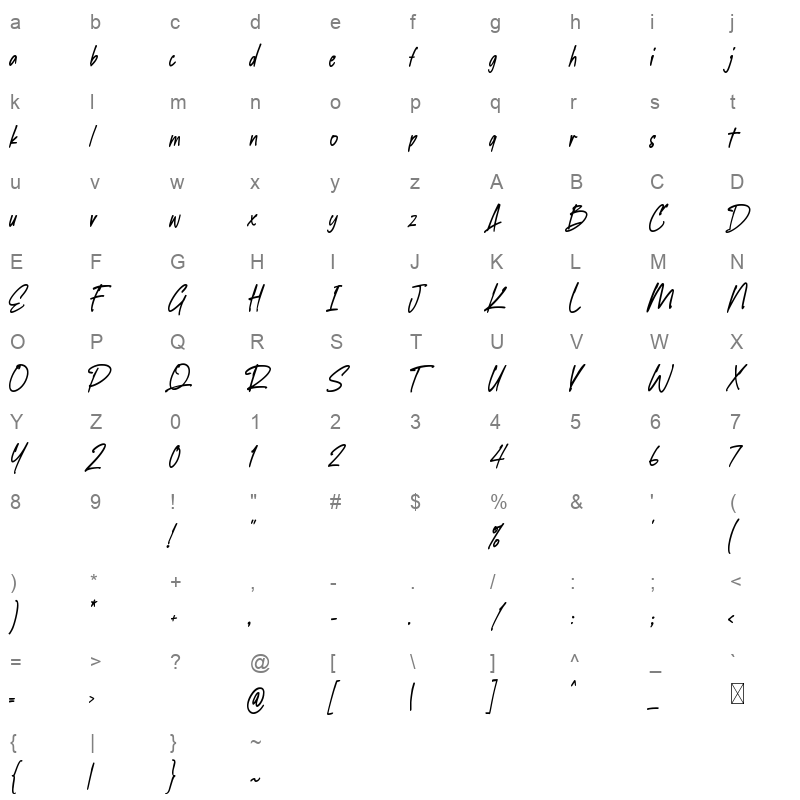 a b c d e f g h i j
a b c d e f g h i j
k l m n o p q r s t
k l m n o p q r s t
u v w x y z A B C D
u v w x y z A B C D
E F G H I J K L M N
E F G H I J K L M N
O P Q R S T U V W X
O P Q R S T U V W X
Y Z 0 1 2 3 4 5 6 7
Y Z 0 1 2 4 6 7
8 9 ! " # $ % & ' (
! " % ' (
) * + , - . / : ; <
) * + , - . / : ; <
= > ? @ [ \ ] ^ _ `
= > @ [ \ ] ^ _
{ | } ~
{ | } ~